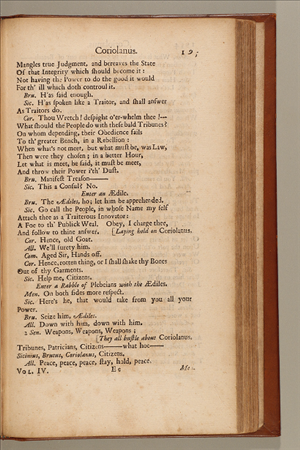 Coriolanus.
Mangles true Judgment, and bereaves the State
Of that Integrity which should become it:
Not having the Power to do the good it would
For th' ill which doth controul it.
Bru. H'as said enough.
Sic. H'as spoken like a Traitor, and shall answer
As Traitors do.
Cor. Thou Wretch! despight o'er-whelm thee!--
What should the People do with these bald Tribunes?
On whom depending, their Obedience fails
To th' greater Bench, in a Rebellion:
When what's not meet, but what must be, was Law,
Then were they chosen; in a better Hour,
Let what is meet, be said, it must be meet,
And throw their Power i'th' Dust.
Bru. Manifest Treason——
Sic. This a Consul? No.
Enter an Ædile.
Bru. The Ædiles, ho; let him be apprehended.
Sic. Go call the People, in whose Name my self
Attach thee as a Traiterous Innovator:
A Foe to th' Publick Weal. Obey, I charge thee,
And follow to thine answer. [Laying hold on Coriolanus.
Cor. Hence, old Goat.
All. We'll surety him.
Com. Aged Sir, Hands off.
Cor. Hence, rotten thing, or I shall shake thy Bones
Out of thy Garments.
Sic. Help me, Citizens.
Enter a Rabble of Plebeians with the Ædiles.
Men. On both sides more respect.
Sic. Here's he, that would take from you all your
Power.
Bru. Seize him, Ædiles.
All. Down with him, down with him.
2 Sen. Weapons, Weapons, Weapons;
[They all bustle about Coriolanus.
Tribunes, Patricians, Citizens——what hoe——
Sicinius, Brutus, Coriolanus, Citizens.
All. Peace, peace, peace, stay, hold, peace.
Vol. IV. Ee Me-